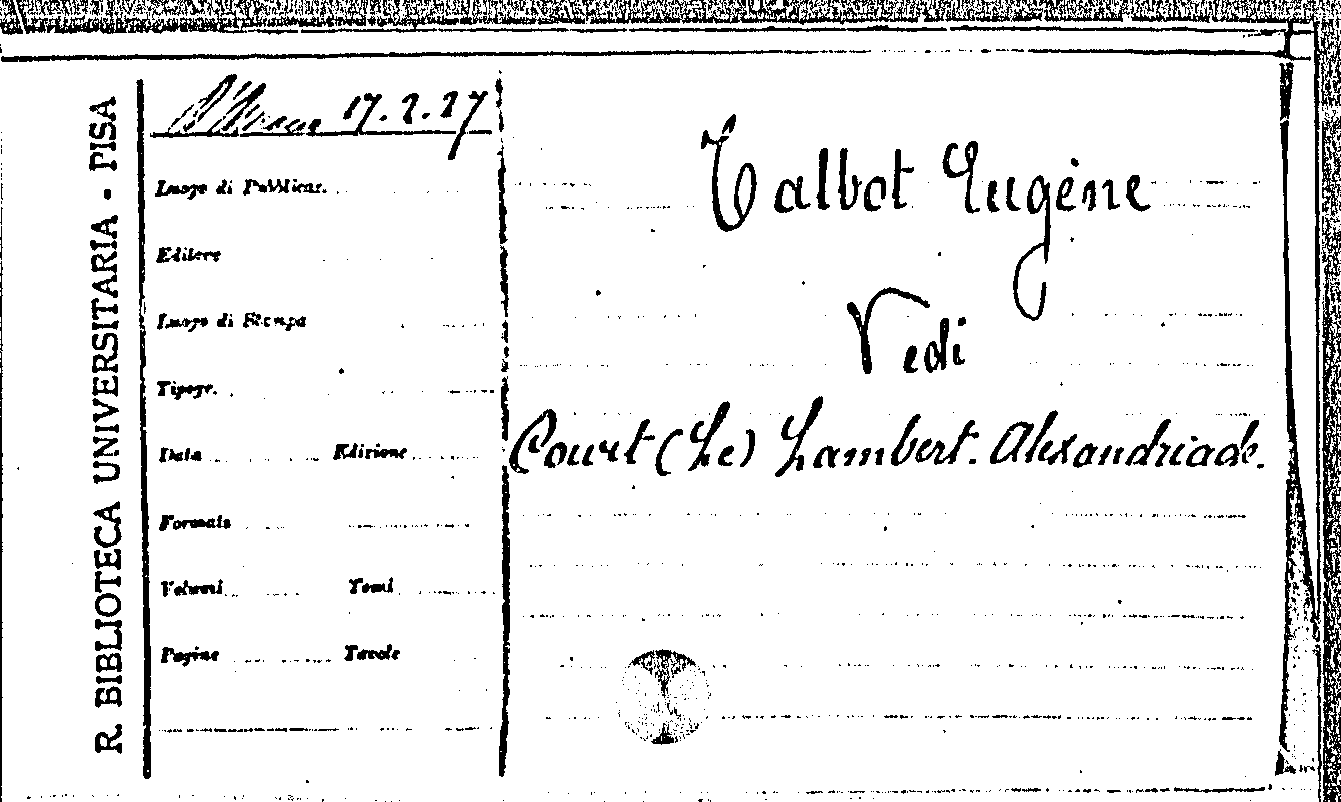 R. BIBLIOTECA UNIVERSITARIA - PISA
D'Ancona 17.2.27
Luogo di Pubblicaz.
Editore
Luogo di Stampa
Tipogr.
Data Edizione
Formato
Volumi Tomi
Pagine Tavole
Talbot Eugène
Vedi
Court (Le) Lambert. Alexandriade.